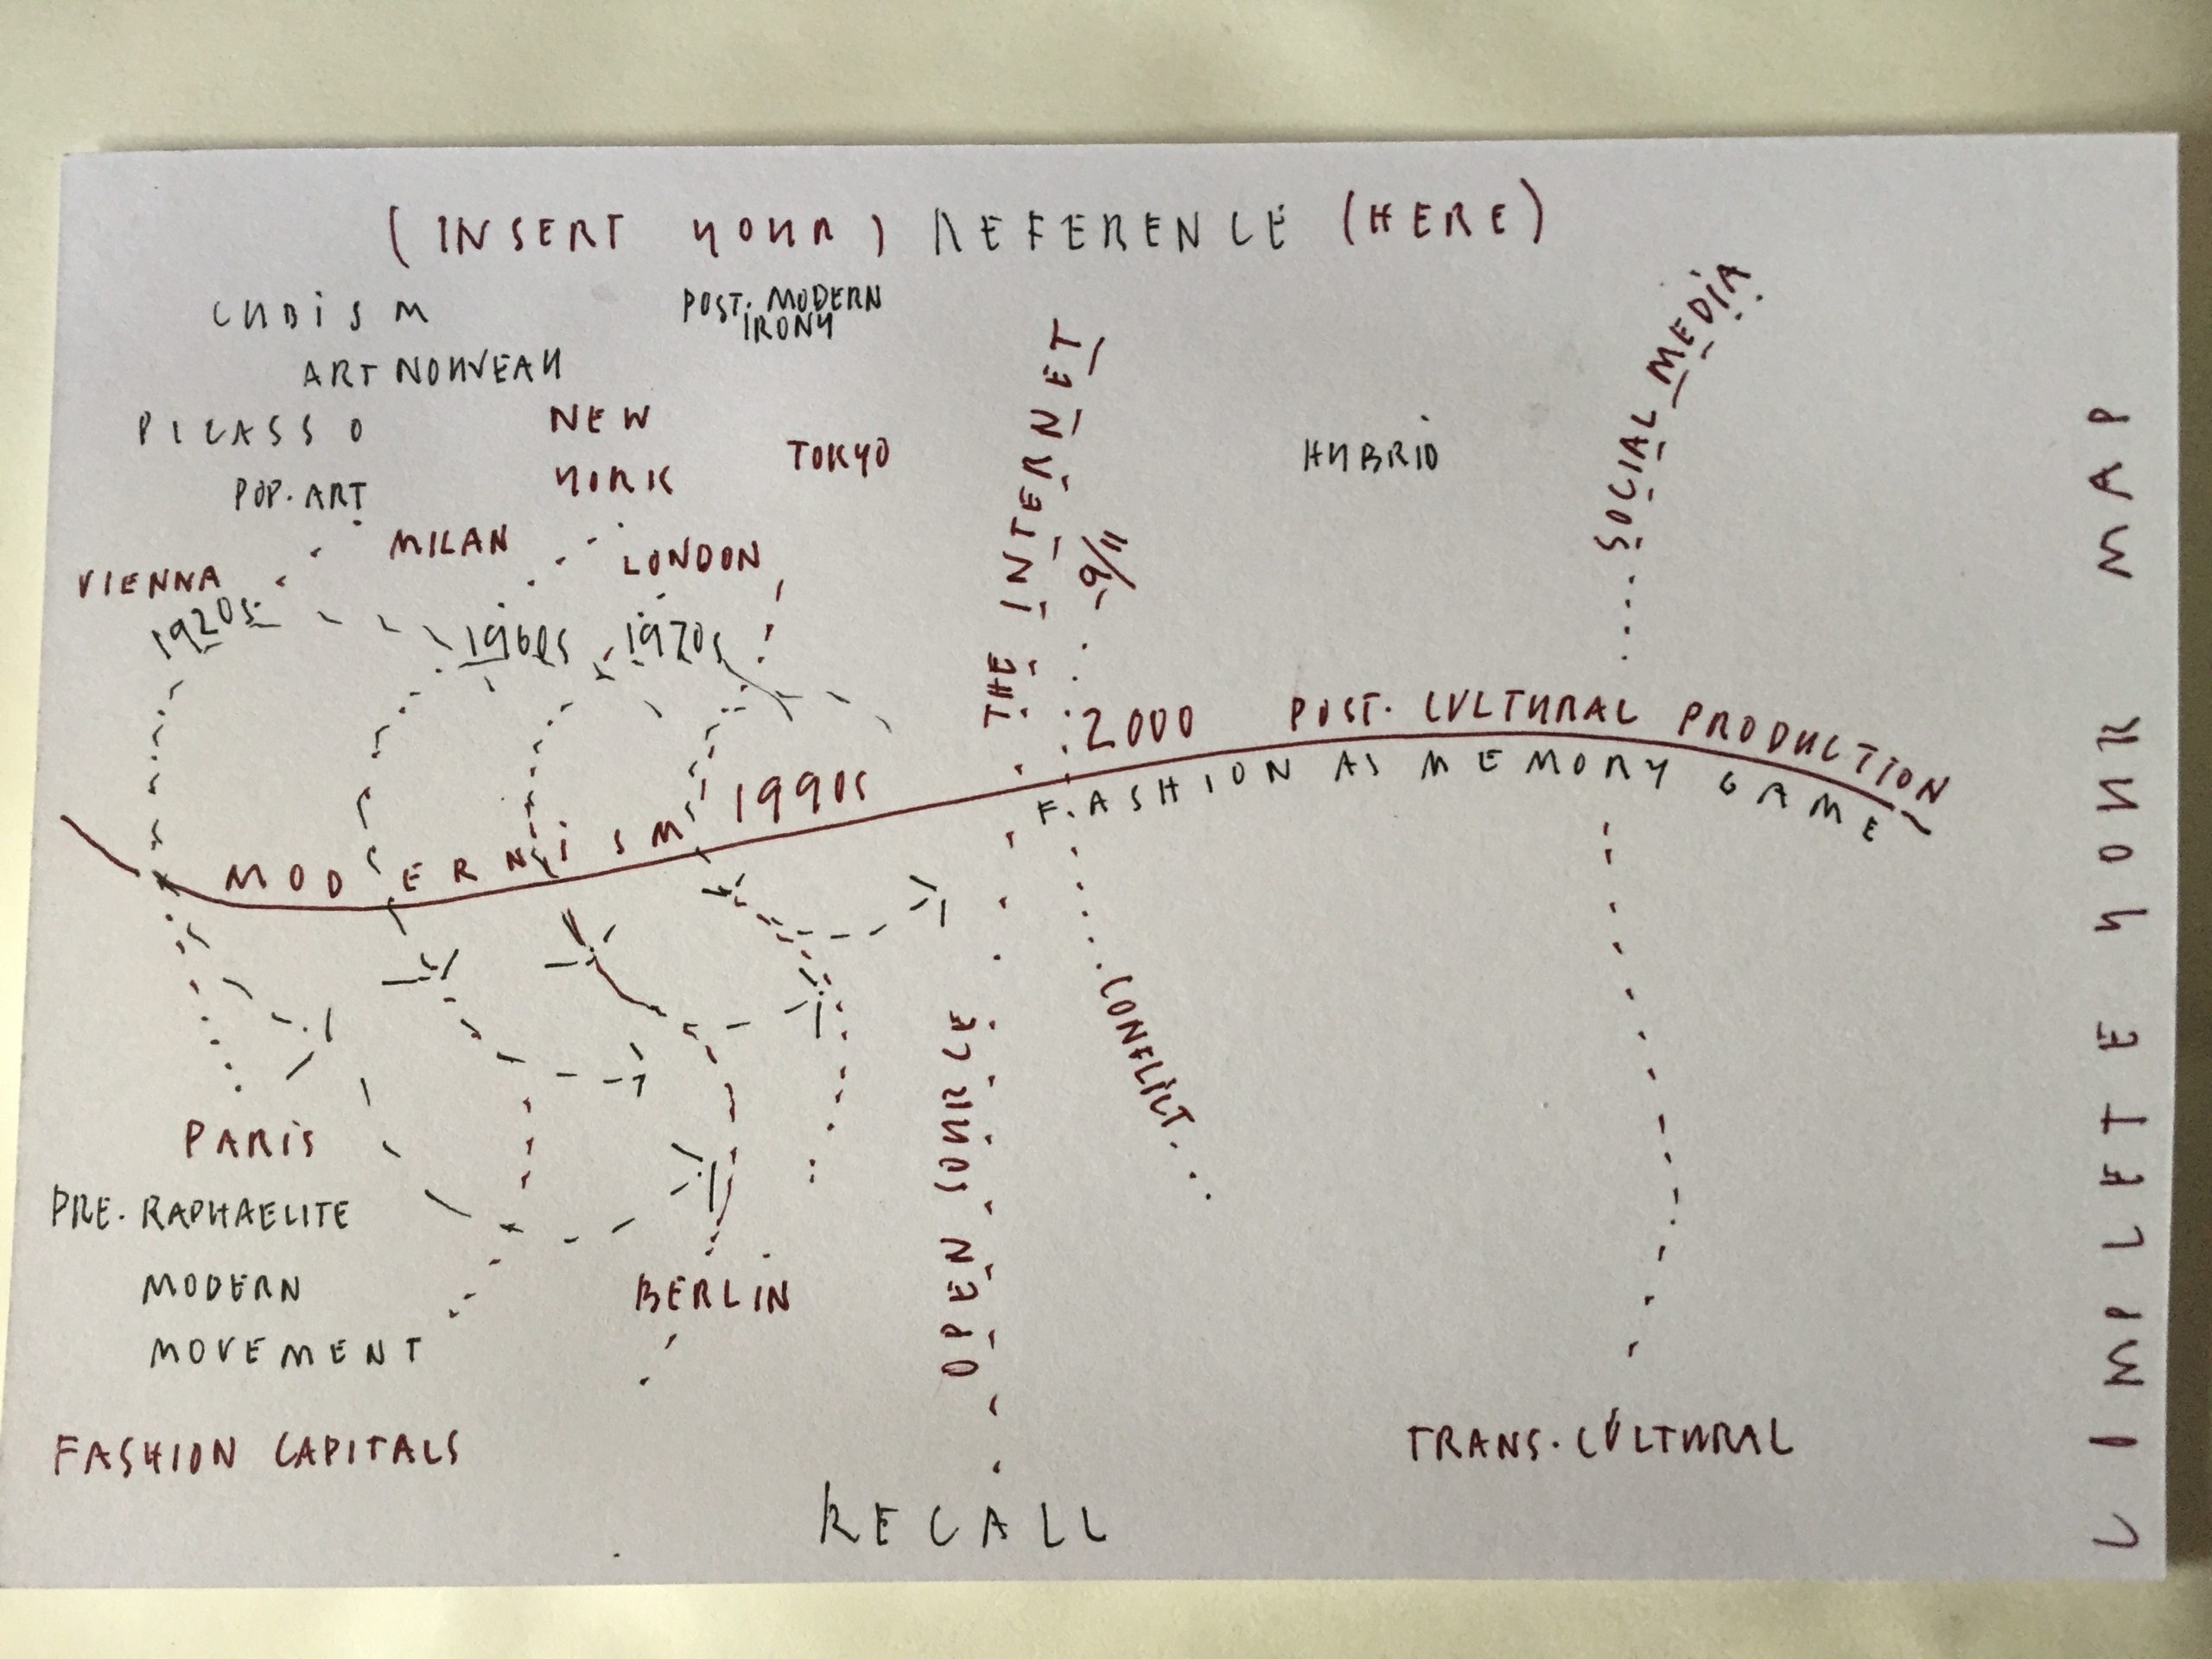 (INSERT YOUR) REFERENCE (HERE)
CUBISM
POST. MODERN
IRONY
ART NOUVEAU
PICASSO
NEW
YORK
TOKYO
POP. ART
MILAN
LONDON
VIENNA
1920s
1960s
1970s
THE INTERNET
9/11
HYBRID
SOCIAL MEDIA
MODERNISM
1990s
2000
POST. CULTURAL PRODUCTION
FASHION AS MEMORY GAME
CONFLICT
OPEN SOURCE
PARIS
PRE. RAPHAELITE
MODERN
MOVEMENT
BERLIN
FASHION CAPITALS
TRANS. CULTURAL
RECALL